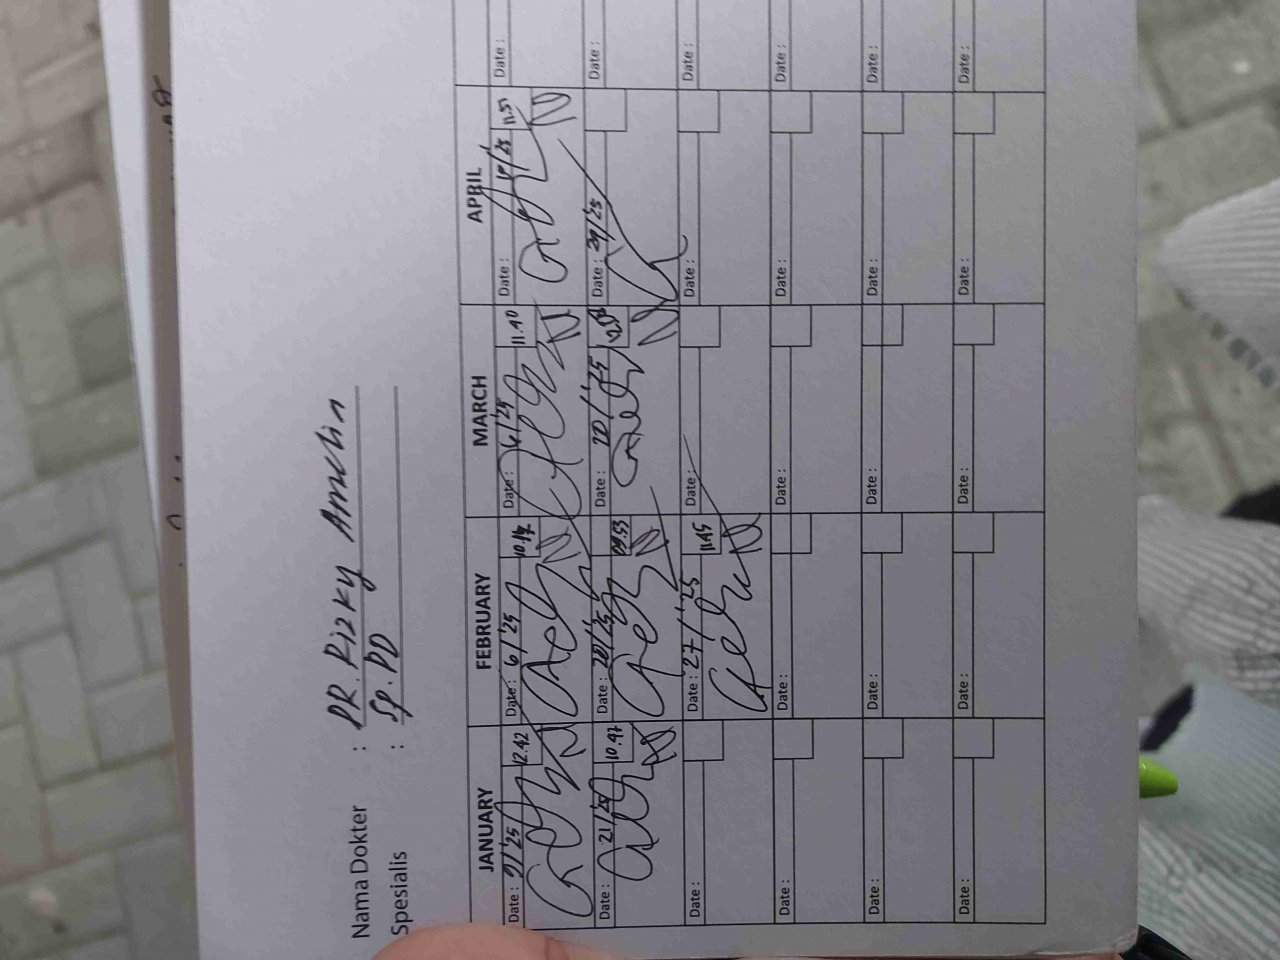 Nama Dokter : DR. Rizky Amelia
Spesialis : Sp. PD
JANUARY FEBRUARY MARCH APRIL
Date : 9/'25 12.42 Date : 6/'25 10.17 Date : 6/'25 11.40 Date : 15/'25 11.51 Date :
Date : 21/'25 10.47 Date : 20/'25 09.53 Date : 20/'25 Date : 29/'25 Date :
Date : Date : 27/'25 11.45 Date : Date : Date :
Date : Date : Date : Date : Date :
Date : Date : Date : Date : Date :
Date : Date : Date : Date : Date :